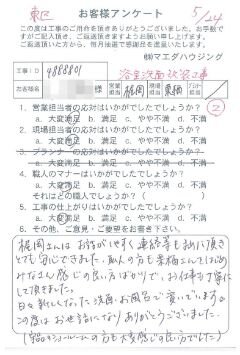 東区
お客様アンケート
5/24
この度は工事のご用命を頂きありがとうございました。お手数で
すがご記入頂き、ご返送頂きますようお願い申し上げます。
ご返送頂きますと、毎月抽選で感謝品を進呈いたします。
㈱マエダハウジング
浴室洗面改装工事
工事ID 4888801
様
営業担当 梶岡
現場担当 栗栖
②
1. 営業担当者の応対はいかがでしたでしょうか?
a. 大変満足 b. 満足 c. やや不満 d. 不満
2. 現場担当者の応対はいかがでしたでしょうか?
a. 大変満足 b. 満足 c. やや不満 d. 不満
3. プランナーの応対はいかがでしたでしょうか?
a. 大変満足 b. 満足 c. やや不満 d. 不満
4. 職人のマナーはいかがでしたでしょうか?
a. 大変満足 b. 満足 c. やや不満 d. 不満
それはどの職人でしょうか( )
5. 工事の仕上がりはいかがでしたでしょうか?
a. 大変満足 b. 満足 c. やや不満 d. 不満
6. その他、ご意見・ご要望をお聞かせ下さい。
梶岡さんはお話がしやすく連絡等もまめに頂き
とても安心できました。職人の方も栗栖さんをはじめ
みなさん感じの良い方ばかりで、お仕事も丁寧に
して頂きました。
日々新しくなった洗面・お風呂で喜んでいます。
この度はお世話になりありがとうございました。
ショールームの方も大変感じの良い方でした)